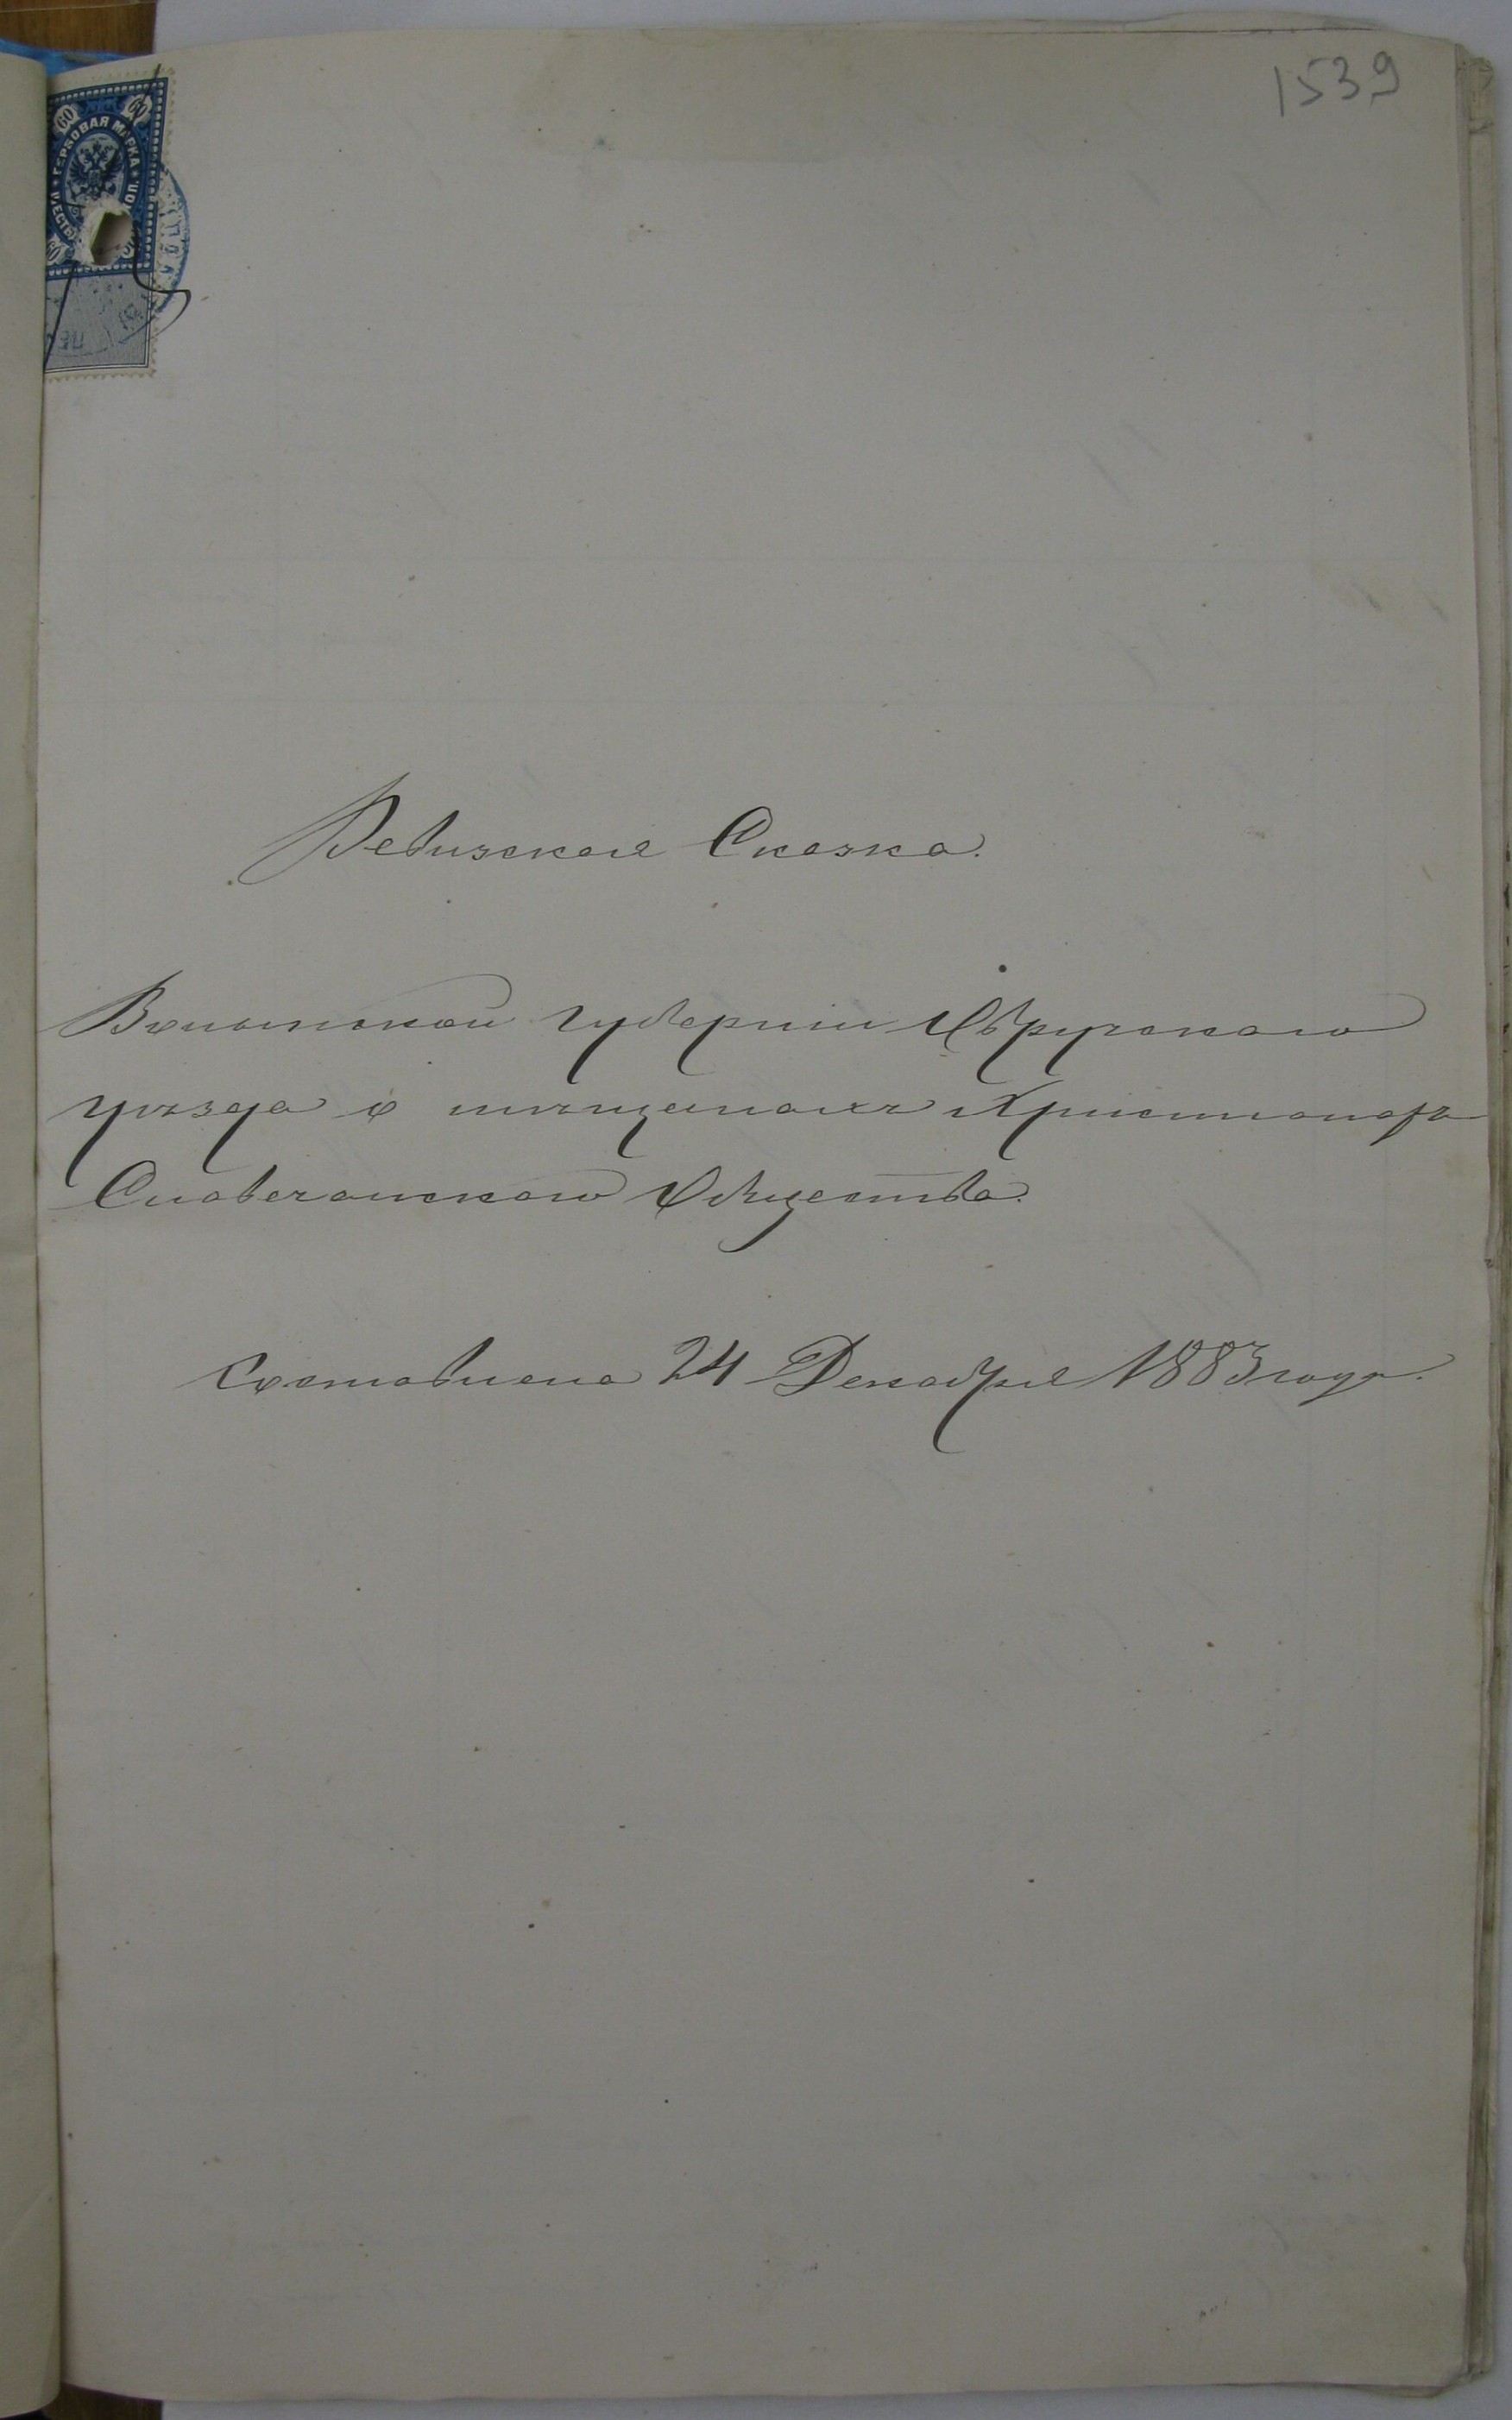 1539
60 60
ГЕРБОВАЯ МАРКА
60
Ревизская Сказка.
Волынской губернии Овручского
уѣзда о мѣщанахъ Христианахъ
Словечанского Общества.
Составлена 24 Декабря 1883 года.